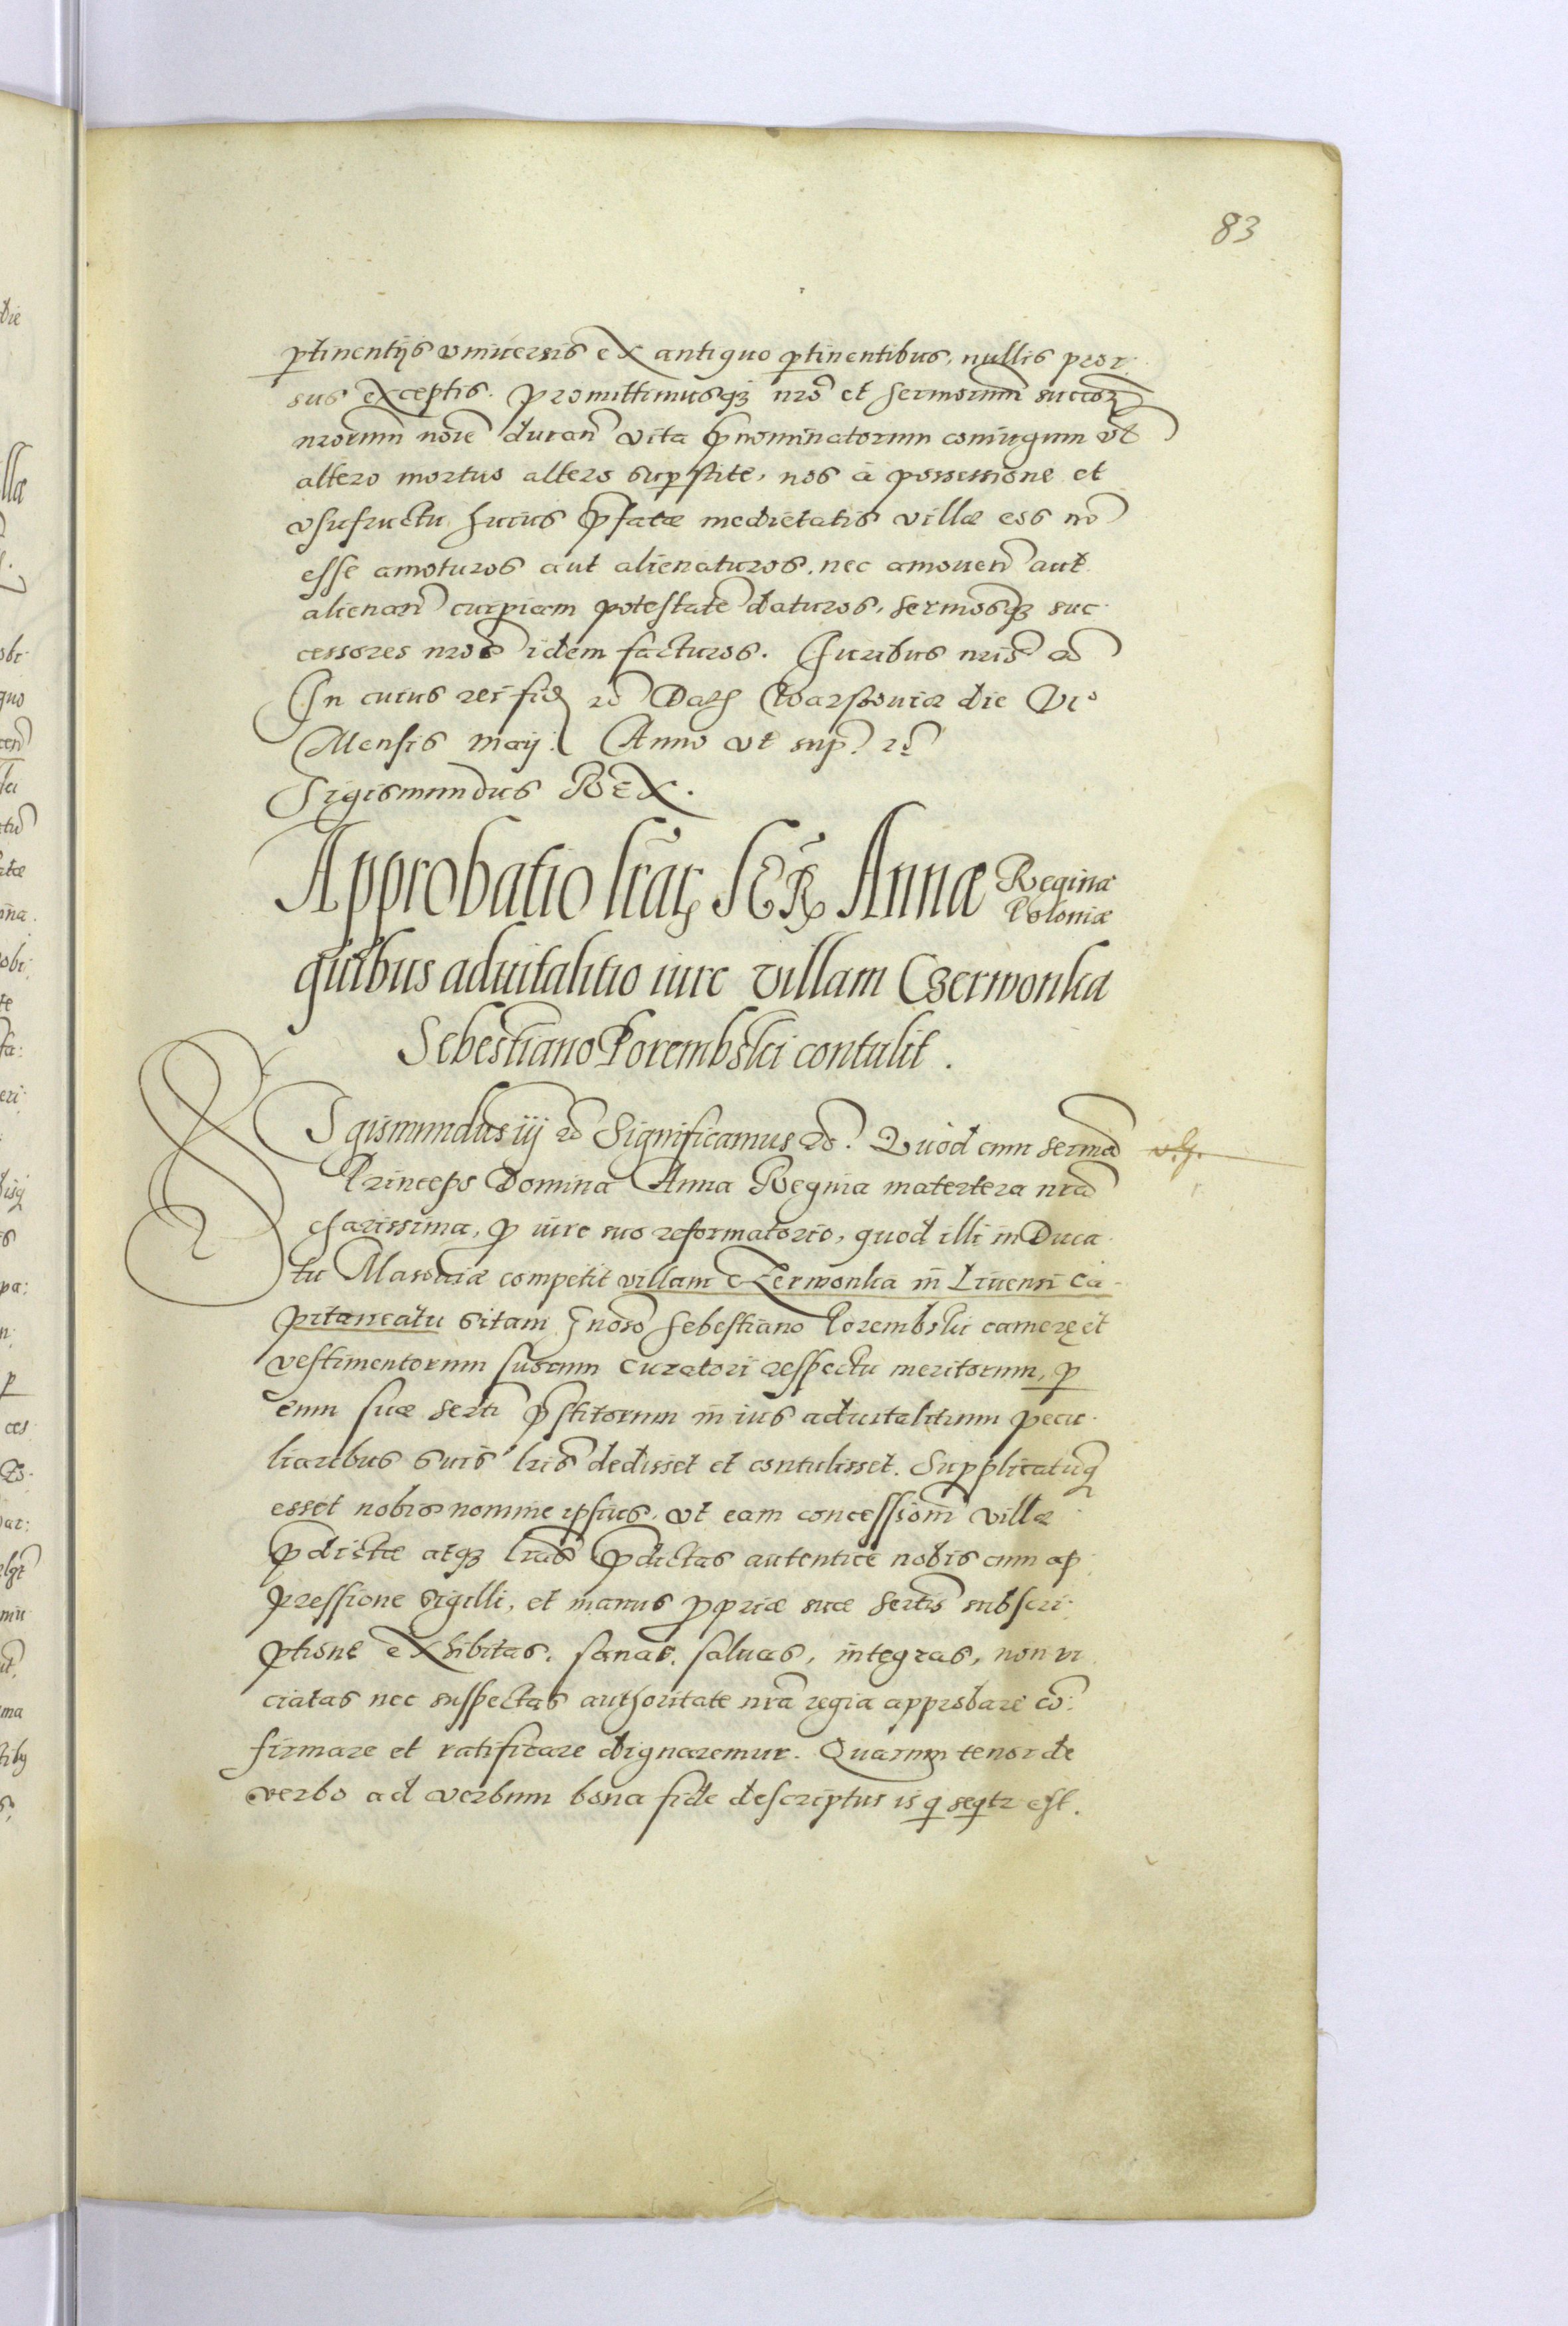 83
ptinentijs vniuersis ex antiquo ptinentibus, nullis pror
sus exceptis. Promittimusq3 nro et sermorum succor
nrorum noie duran vita pnominatorum coniugum vt
altero mortuo altero supstite, nos a possessione et
vsufructu huius pfatæ medietatis villæ eos no
esse amoturos aut alienaturos, nec amouen aut
alienan cuipiam potestate daturos, sermosq3 suc
cessores nros idem facturos. Iuribus nris
In cuius rei fid Dat Warssouiæ die VI
Mensis Maij. Anno vt sup.
Sigismundus REX.
Approbatio lrar Annæ Reginæ
Poloniæ
quibus aduitalitio iure villam Czerwonka
Sebestiano Porembski contulit.
Sigismundus iij Significamus. Quod cum serma
Princeps Domina Anna Regina matertera nra
charissima, p iure suo reformatorio, quod illi in Duca
tu Masouiæ competit villam Czerwonka in Liuensi Ca
pitaneatu sitam Gnoso Sebestiano Porembski cameræ et
vestimentorum suorum curatori respectu meritorum, p
eum suæ serti pstitorum in ius aduitalitium pecu
liaribus suis lris dedisset et contulisset. Supplicatuq
esset nobis nomine ipsius, vt eam concessiom villæ
pdictæ atq3 lras pdictas autentice nobis cum ap
pressione sigilli, et manus ppriæ suæ sertis subscri
ptione exhibitas, sanas, saluas, integras, non vi
ciatas nec suspectas authoritate nra regia approbare co
firmare et ratificare dignaremur. Quarum tenor de
verbo ad verbum bona fide descriptus is q seqtr est.